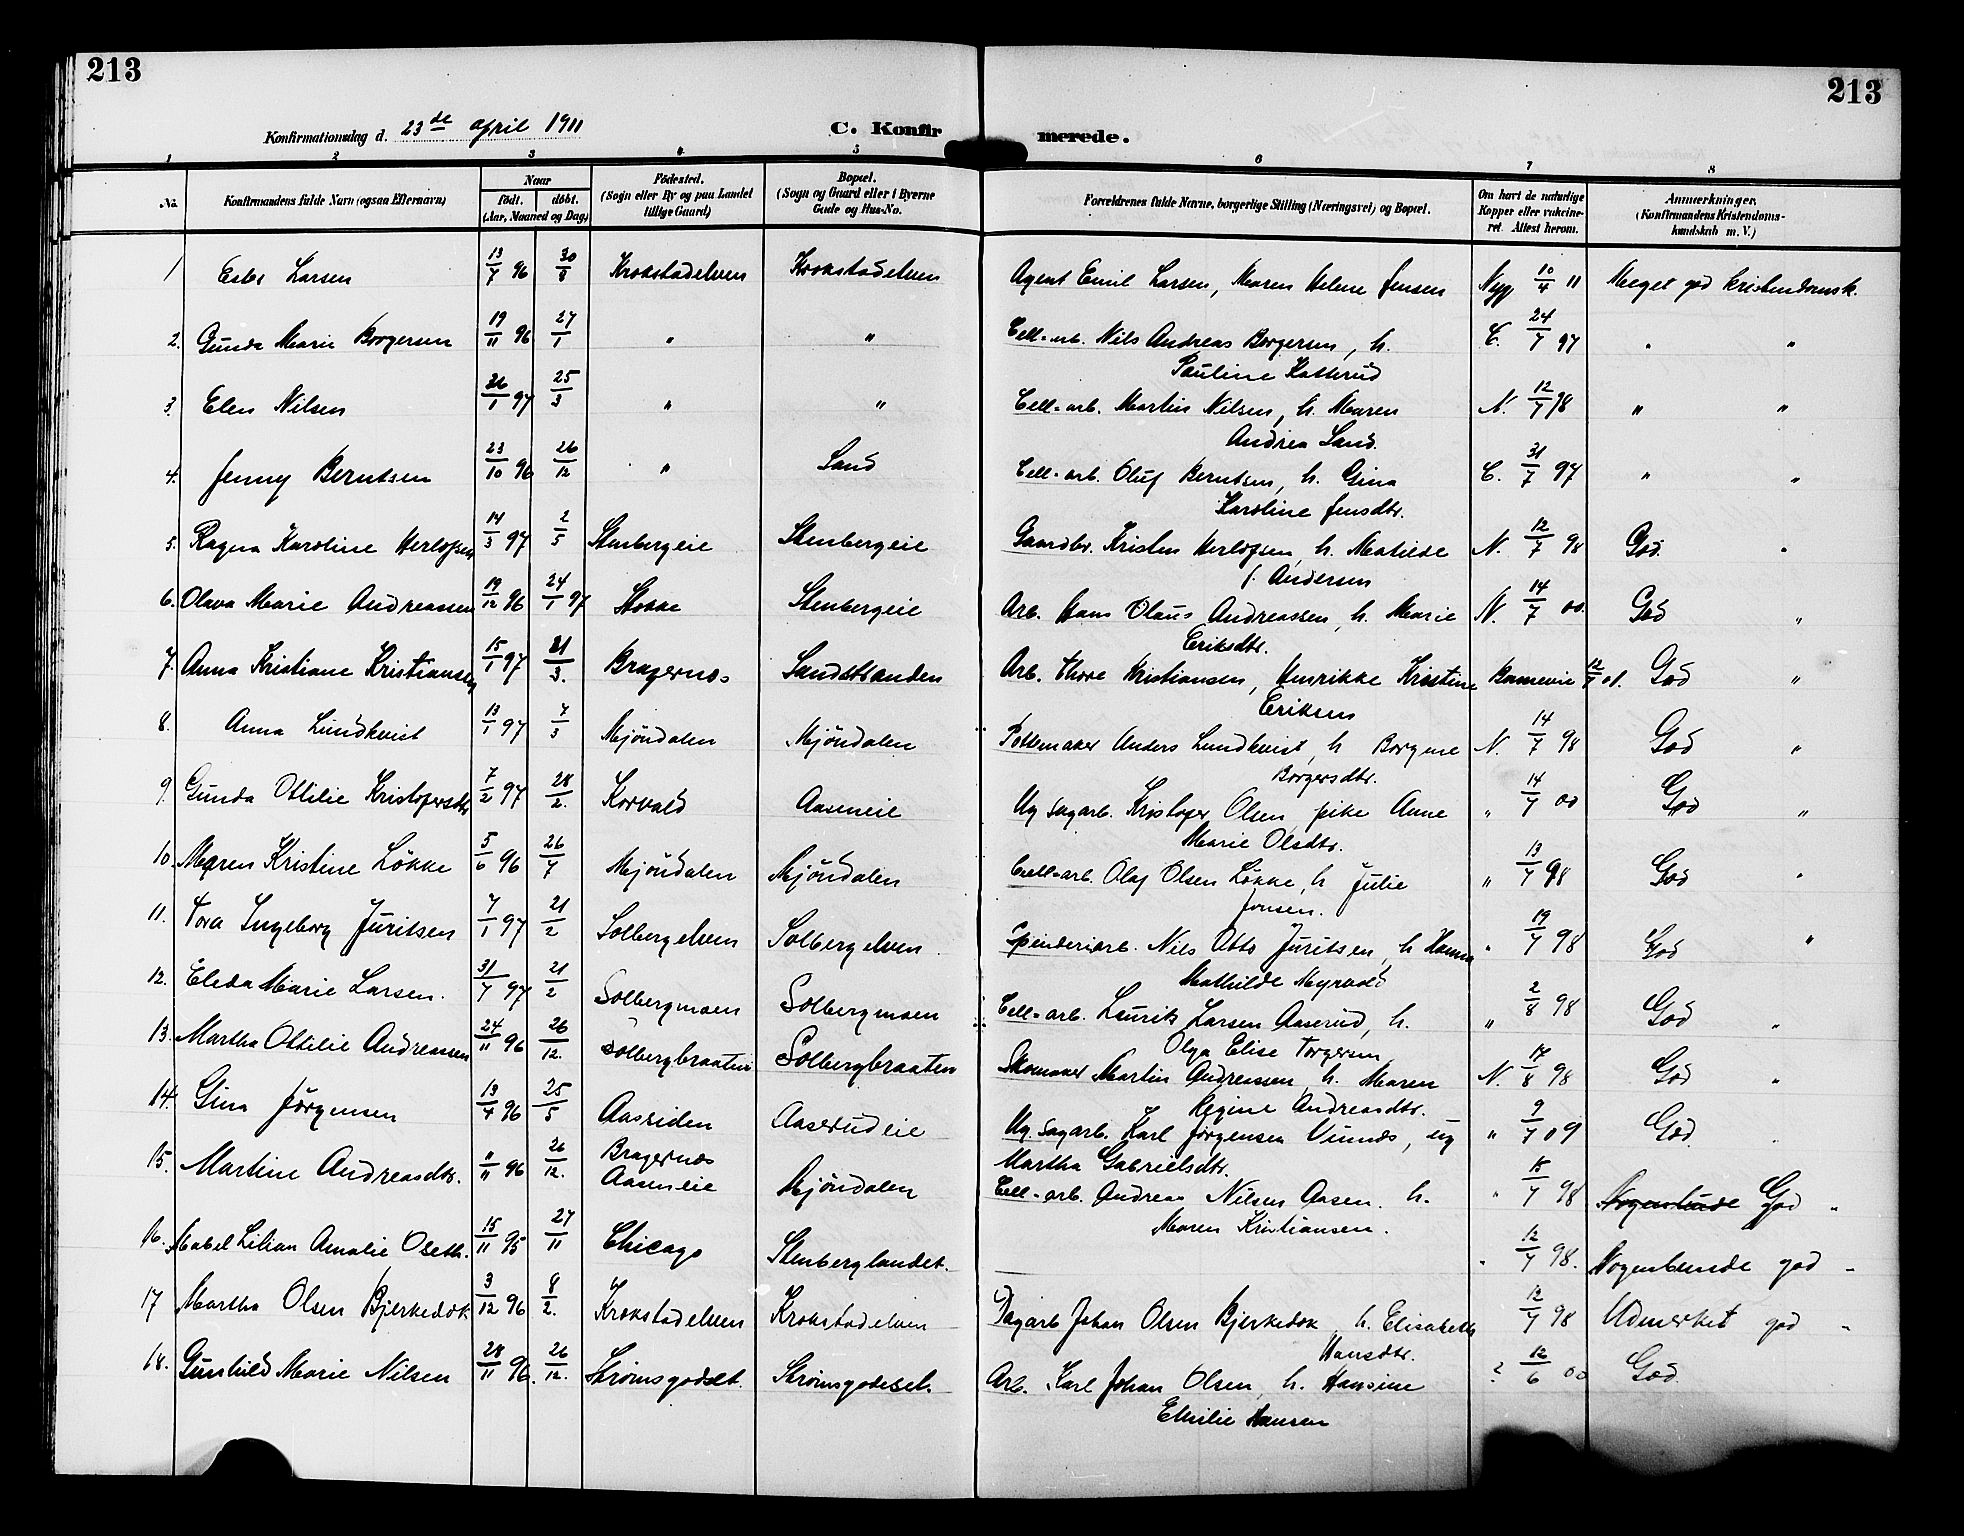 213
213
Konfirmationsdag d. 23de april 1911
C. Konfir merede.
1 2 3 4 5 6 7 8
No. Konfirmandens fulde Navn (ogsaa Efternavn) Naar født. døbt. (Aar, Maaned og Dag) Fødested. (Sogn eller By og paa Landet tillige Gaard) Bopæl. (Sogn og Gaard eller i Byerne Gade og Hus-No. Forældrenes fulde Navne, borgerlige Stilling (Næringsvei) og Bopæl. Om havt de naturlige Kopper eller vakcineret. Attest herom. Anmerkninger. (Konfirmandens Kristendomskundskab m. V.)
1 Larsen 13/7 96 30/8 Krokstadelven Krokstadelven Agent Emil Larsen, Maren Helene Jensen Nyg 10/4 11 Meget god kristendomsk.
2. Gunda Marie Borgersen 19/11 96 27/1 " " Cell-arb. Nils Andreas Borgersen, h. C. 24/7 97 " "
Pauline Katterud
3. Elen Nilsen 1 97 25/3 " " Cell-arb. Martin Nilsen, h. Maren N. 12/7 98 " "
Andrea Sand.
4. Jenny Berntsen 23/10 96 26/12 " Sand Cell-arb. Oluf Berntsen, h. Gina C. 31/7 97 " "
Karoline Jensdtr.
5. Ragna Karoline Herlofsen 14/3 97 2/5 Stenbergeie Stenbergeie Gaardbr. Kristen Herlofsen, h. Matilde N. 12/7 98 God. "
f. Andersen
6. Olava Marie Andreassen 19/12 96 24/1 97 Stokke Stenbergeie Arb. Hans Olaus Andreassen, h. Marie N. 14/7 00. God "
Eriksdtr.
7. Anna Kristiane Kristiansen 15/1 97 21/3. Bragernæs Sandstranden Arb. Thore Kristiansen, Henrikke Kristine 12/7 01. God "
Eriksen
8. Anna Lundkvist 13/1 97 7/3 Mjöndalen Mjöndalen Pottemaker Anders Lundkvist, h Borgine N. 14/7 98 God "
Borgersdtr.
9. Gunda Ottilie Kristofersdtr 7/2 97 28/2. Korvald Aaseneie Ug sagarb. Kristofer Olsen pike Anne " 14/7 00 God "
Marie Olsdtr.
10. Maren Kristine Lökke 5/6 96 26/7 Mjöndalen Mjöndalen Cell-arb. Olaf Olsen Lökke, h Julie " 13/7 98 God "
Jonsen.
11. Tora Ingeborg Juritsen 7/1 97 21/2 Solbergelven Solbergelven. Spinderiarb. Nils Otto Juritsen, h Hanna " 19/7 98 God "
Mathilde Myrvold
12. Eleda Marie Larsen. 31/7 97 21/2 Solbergmoen Solbergmoen Cell-arb. Laurits Larsen Aaserud, h. " 2/8 98 God "
Olga Elise Torgersen
13. Martha Ottilie Andreassen 24/11 96 26/12. Solbergbraaten Solbergbraaten Skomaker Martin Andreassen, h. Maren N. 17/8 98 God "
Regine Andreasdtr.
14. Gina Jörgensen 13/4 96 25/5 Aassiden Aaserudeie Ug. sagarb. Karl Jörgensen Vinnæs, ug " 9/7 09 God. "
Martha Gabrielsdtr.
15. Martine Andreasdtr. 11/11 96 26/12. Bragernæs Aaseneie Mjöndalen Cell-arb. Andreas Nilsen Aasen. h. " 15/7 98 Nogenlunde God "
Maren Kristiansen.
16. Mabel Lilian Amalie Oseth. 15/11 95 27/11 Chicago Stenberglandet. " 12/7 98. Nogenlunde god "
17 Martha Olsen Bjerkedok 3/12 96 8/2. Krokstadelven Krokstadelven Dagarb Johan Olsen Bjerkedok, h. Elisabeth 12/7 98 Udmerket god "
Hansdtr.
18. Gunhild Marie Nilsen 28/11 96. 26/12. Strömsgodset. Strömsgodset. Arb. Karl Johan Olsen, h. Hansine ? 12/6 00 God
Emilie Hansen